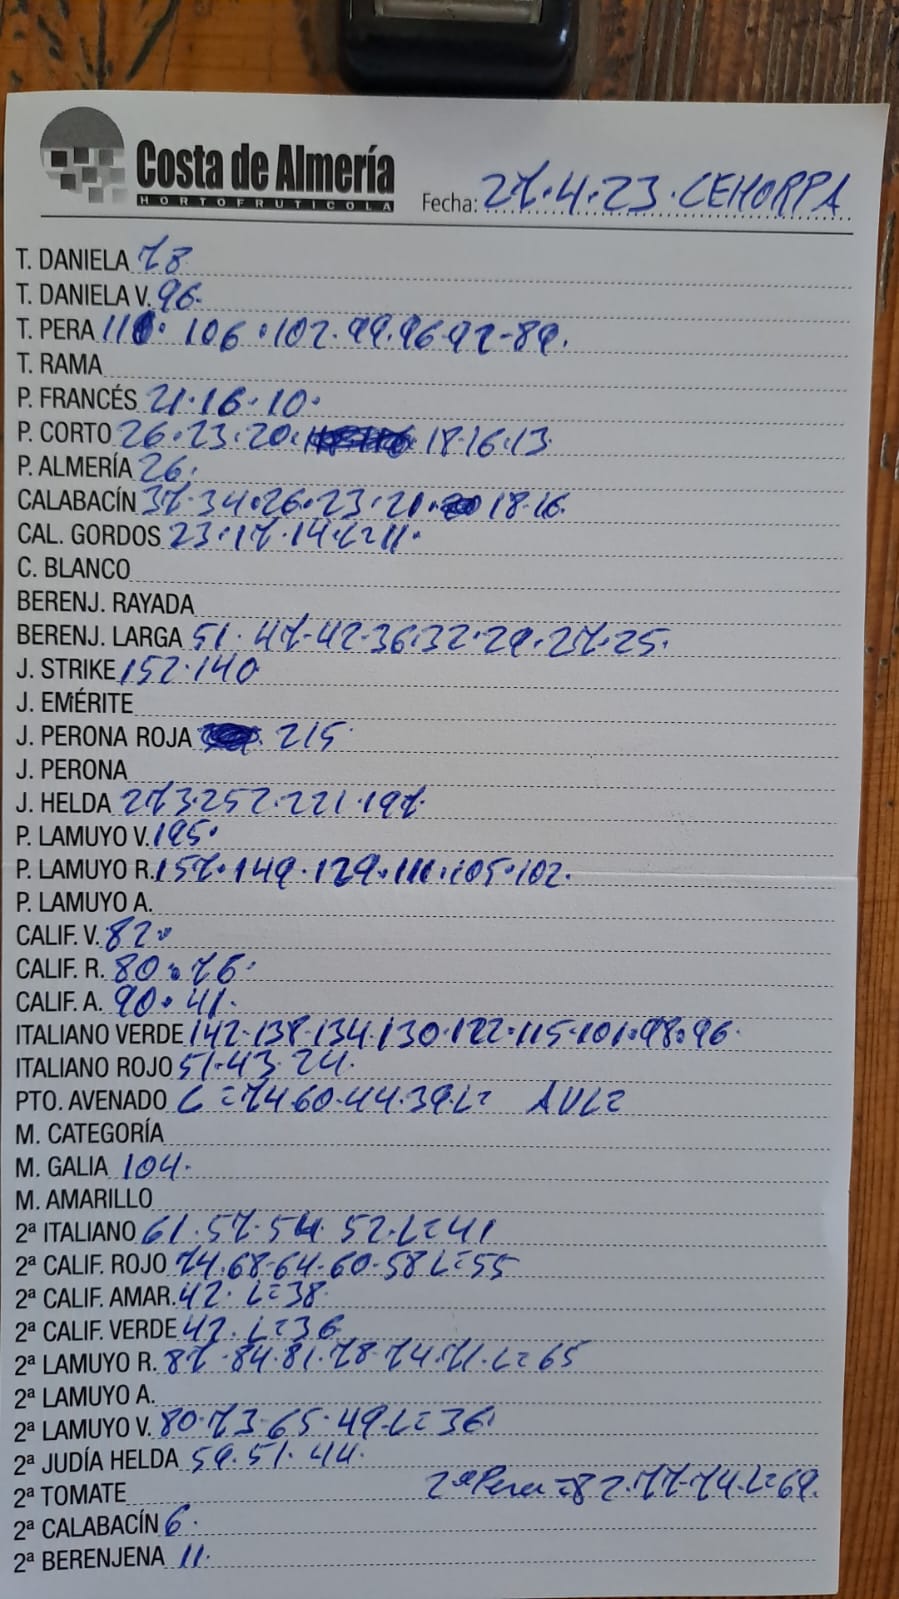 Costa de Almería
HORTOFRUTICOLA
Fecha: 27.4.23. CEHORPA
T. DANIELA 78
T. DANIELA V. 96.
T. PERA 110. 106.102.99.96.92-89.
T. RAMA
P. FRANCÉS 21.16.10.
P. CORTO 26.23.20. 18.16.13
P. ALMERÍA 26.
CALABACÍN 37.34.26.23.21. 18.16.
CAL. GORDOS 23.17.14.L=11.
C. BLANCO
BERENJ. RAYADA
BERENJ. LARGA 51.47-42-36.32.29.27.25.
J. STRIKE 152.140
J. EMÉRITE
J. PERONA ROJA 215
J. PERONA
J. HELDA 273.252.221.197.
P. LAMUYO V. 195.
P. LAMUYO R. 157.149.129.111.105.102.
P. LAMUYO A.
CALIF. V. 82.
CALIF. R. 80.76.
CALIF. A. 90.41.
ITALIANO VERDE 142-138-134.130.122.115.101.98.96.
ITALIANO ROJO 51.43.24.
PTO. AVENADO L=74.60.44.39.L=
M. CATEGORÍA
M. GALIA 104.
M. AMARILLO
2ª ITALIANO 61.57.54 52.L=41
2ª CALIF. ROJO 74.68-64-60-58 L=55
2ª CALIF. AMAR. 42. L=38
2ª CALIF. VERDE 42. L=36
2ª LAMUYO R. 87.84.81.78.74.71.L=65
2ª LAMUYO A.
2ª LAMUYO V. 80.73.65.49.L=36.
2ª JUDÍA HELDA 59.51.44.
2ª TOMATE 2ª Pera=82.77-74.L=69.
2ª CALABACÍN 6.
2ª BERENJENA 11.